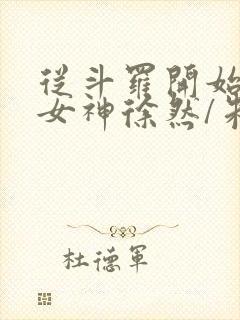 從斗羅開始
女神徐然/
杜德軍